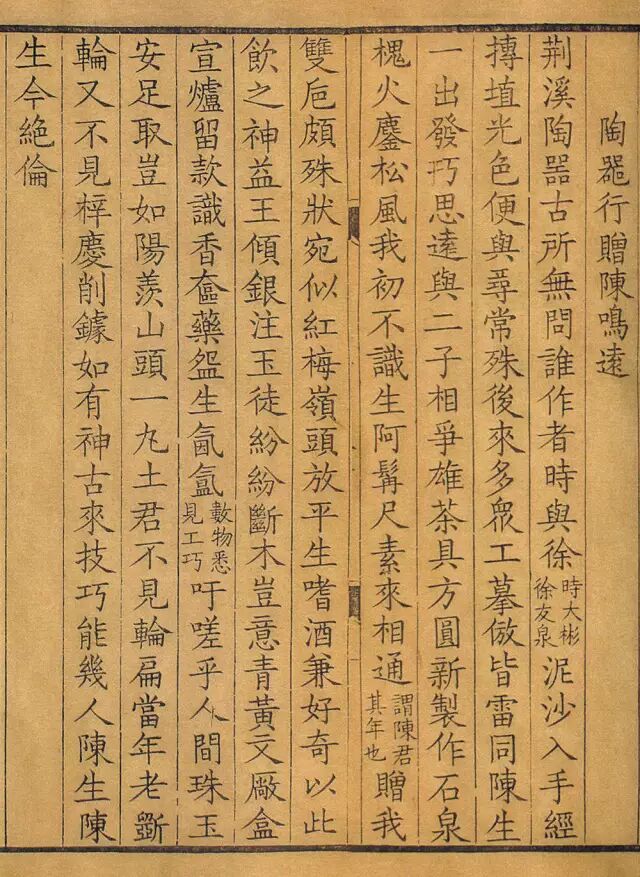 陶器行贈陳鳴遠
荆溪陶器古所無問誰作者時與徐時大彬徐友泉泥沙入手經
摶埴光色便與尋常殊後來多衆工摹倣皆雷同陳生
一出發巧思遠與二子相爭雄茶具方圓新製作石泉
槐火鏖松風我初不識生阿髯尺素來相通謂陳君其年也贈我
雙卮頗殊狀宛似紅梅嶺頭放平生嗜酒兼好奇以此
飲之神益王傾銀注玉徒紛紛斷木豈意青黃文廠盒
宣爐留款識香奩藥盌生氤氳數物悉見工巧吁嗟乎人間珠玉
安足取豈如陽羨山頭一丸土君不見輪扁當年老斲
輪又不見梓慶削鐻如有神古來技巧能幾人陳生陳
生今絶倫